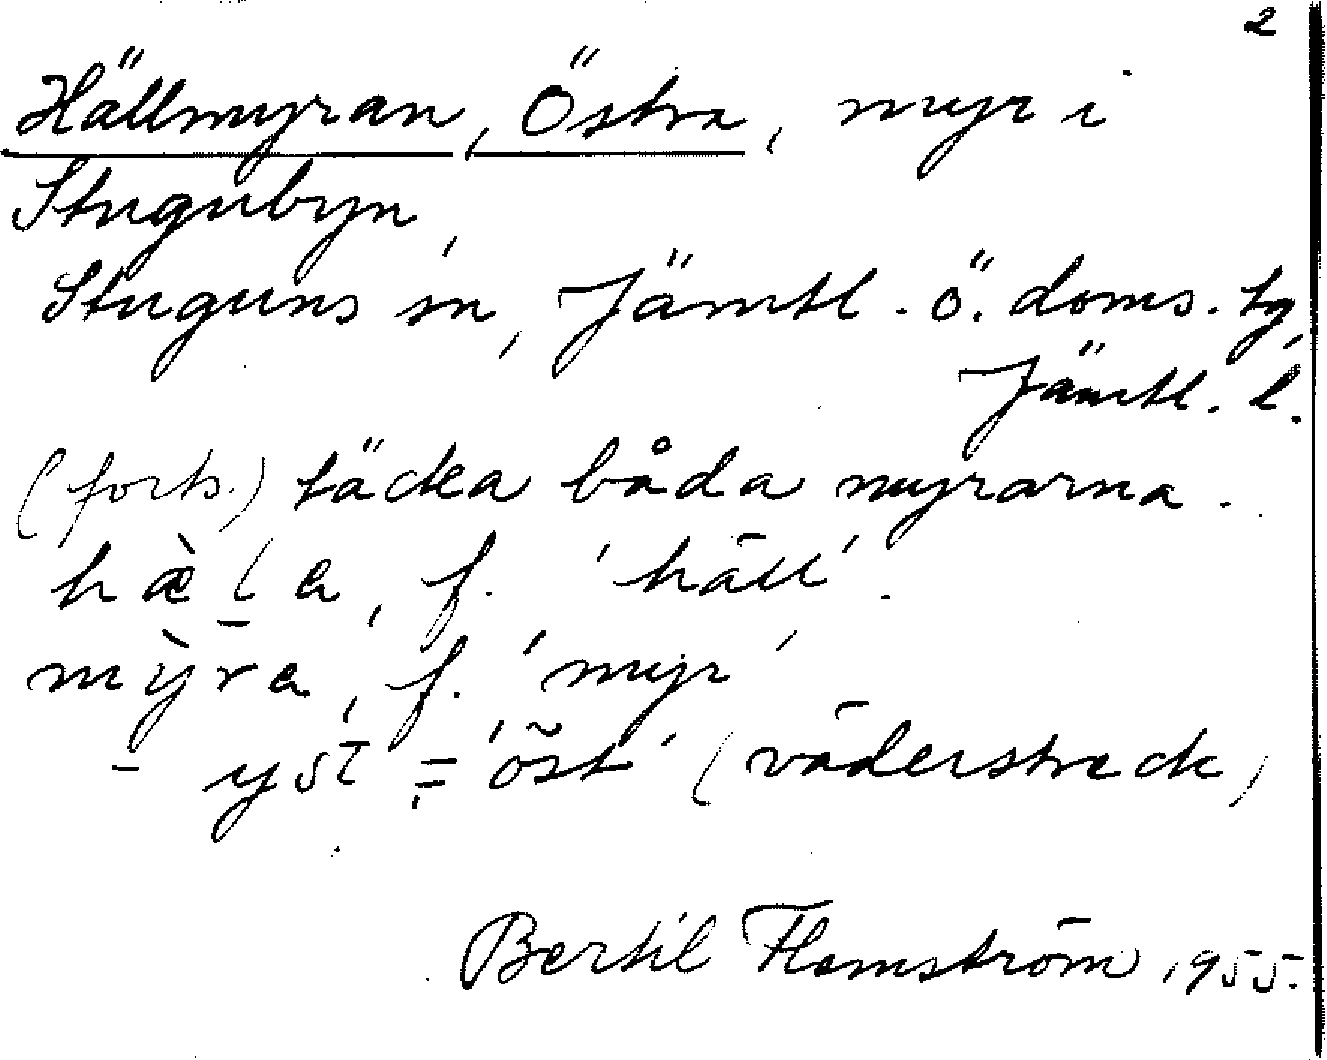 2
Hällmyran, Östra, myr i
Stugubyn,
Stuguns sn, Jämtl. ö. doms. tg,
Jämtl. l.
(forts.) täcka båda myrarna.
hæ̀l̠a, f. 'häll'.
mỳr̄a, f. 'myr'
- yst = 'öst' (väderstreck)
Bertil Flemström 1955.